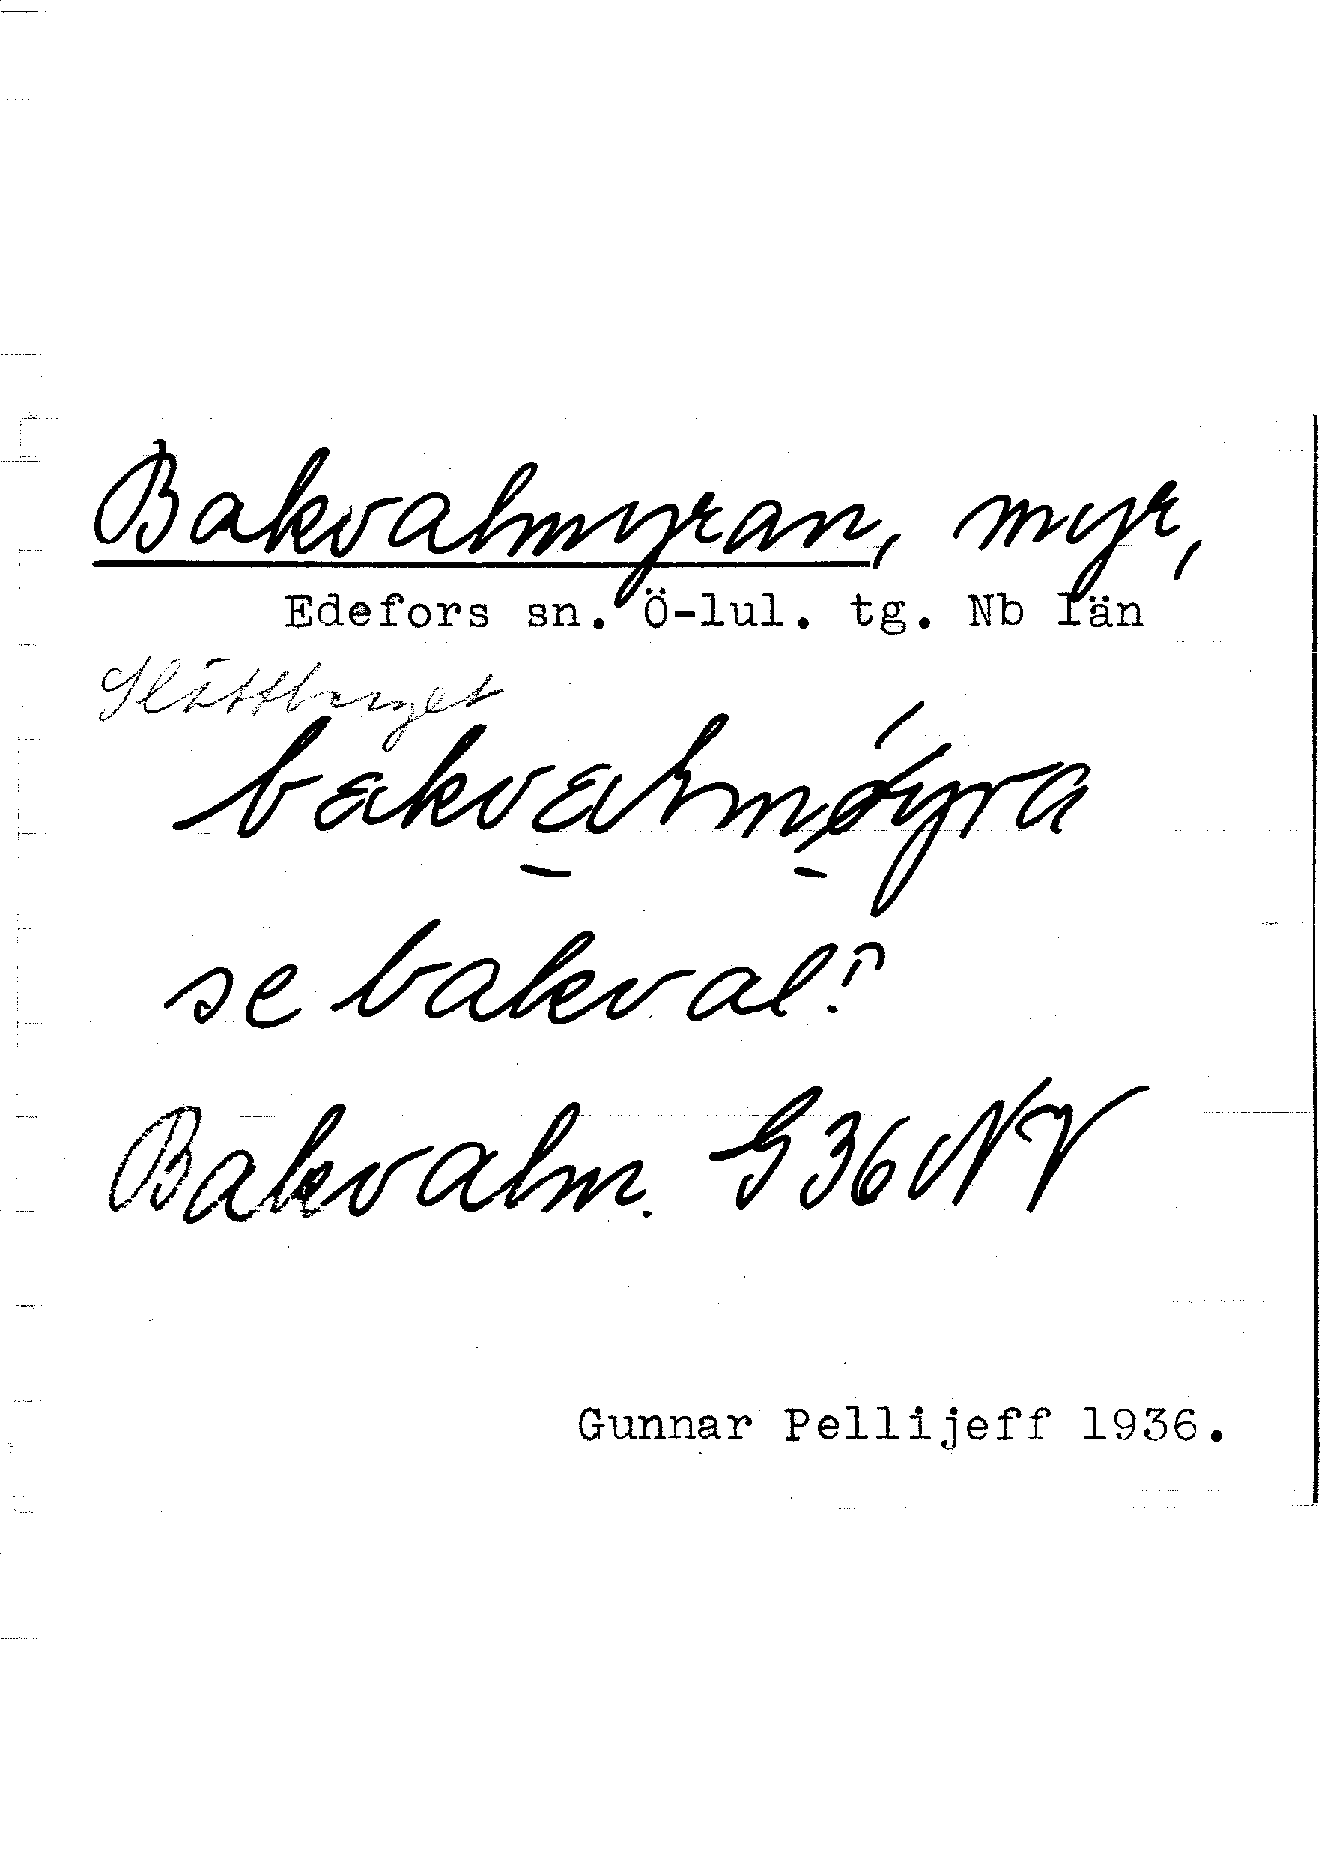 Bakvalmyran, myr,
Edefors sn. Ö-lul. tg. Nb län
Slättberget
bakvalmöyra
se bakval?
Bakvalm. G36NV
Gunnar Pellijeff 1936.